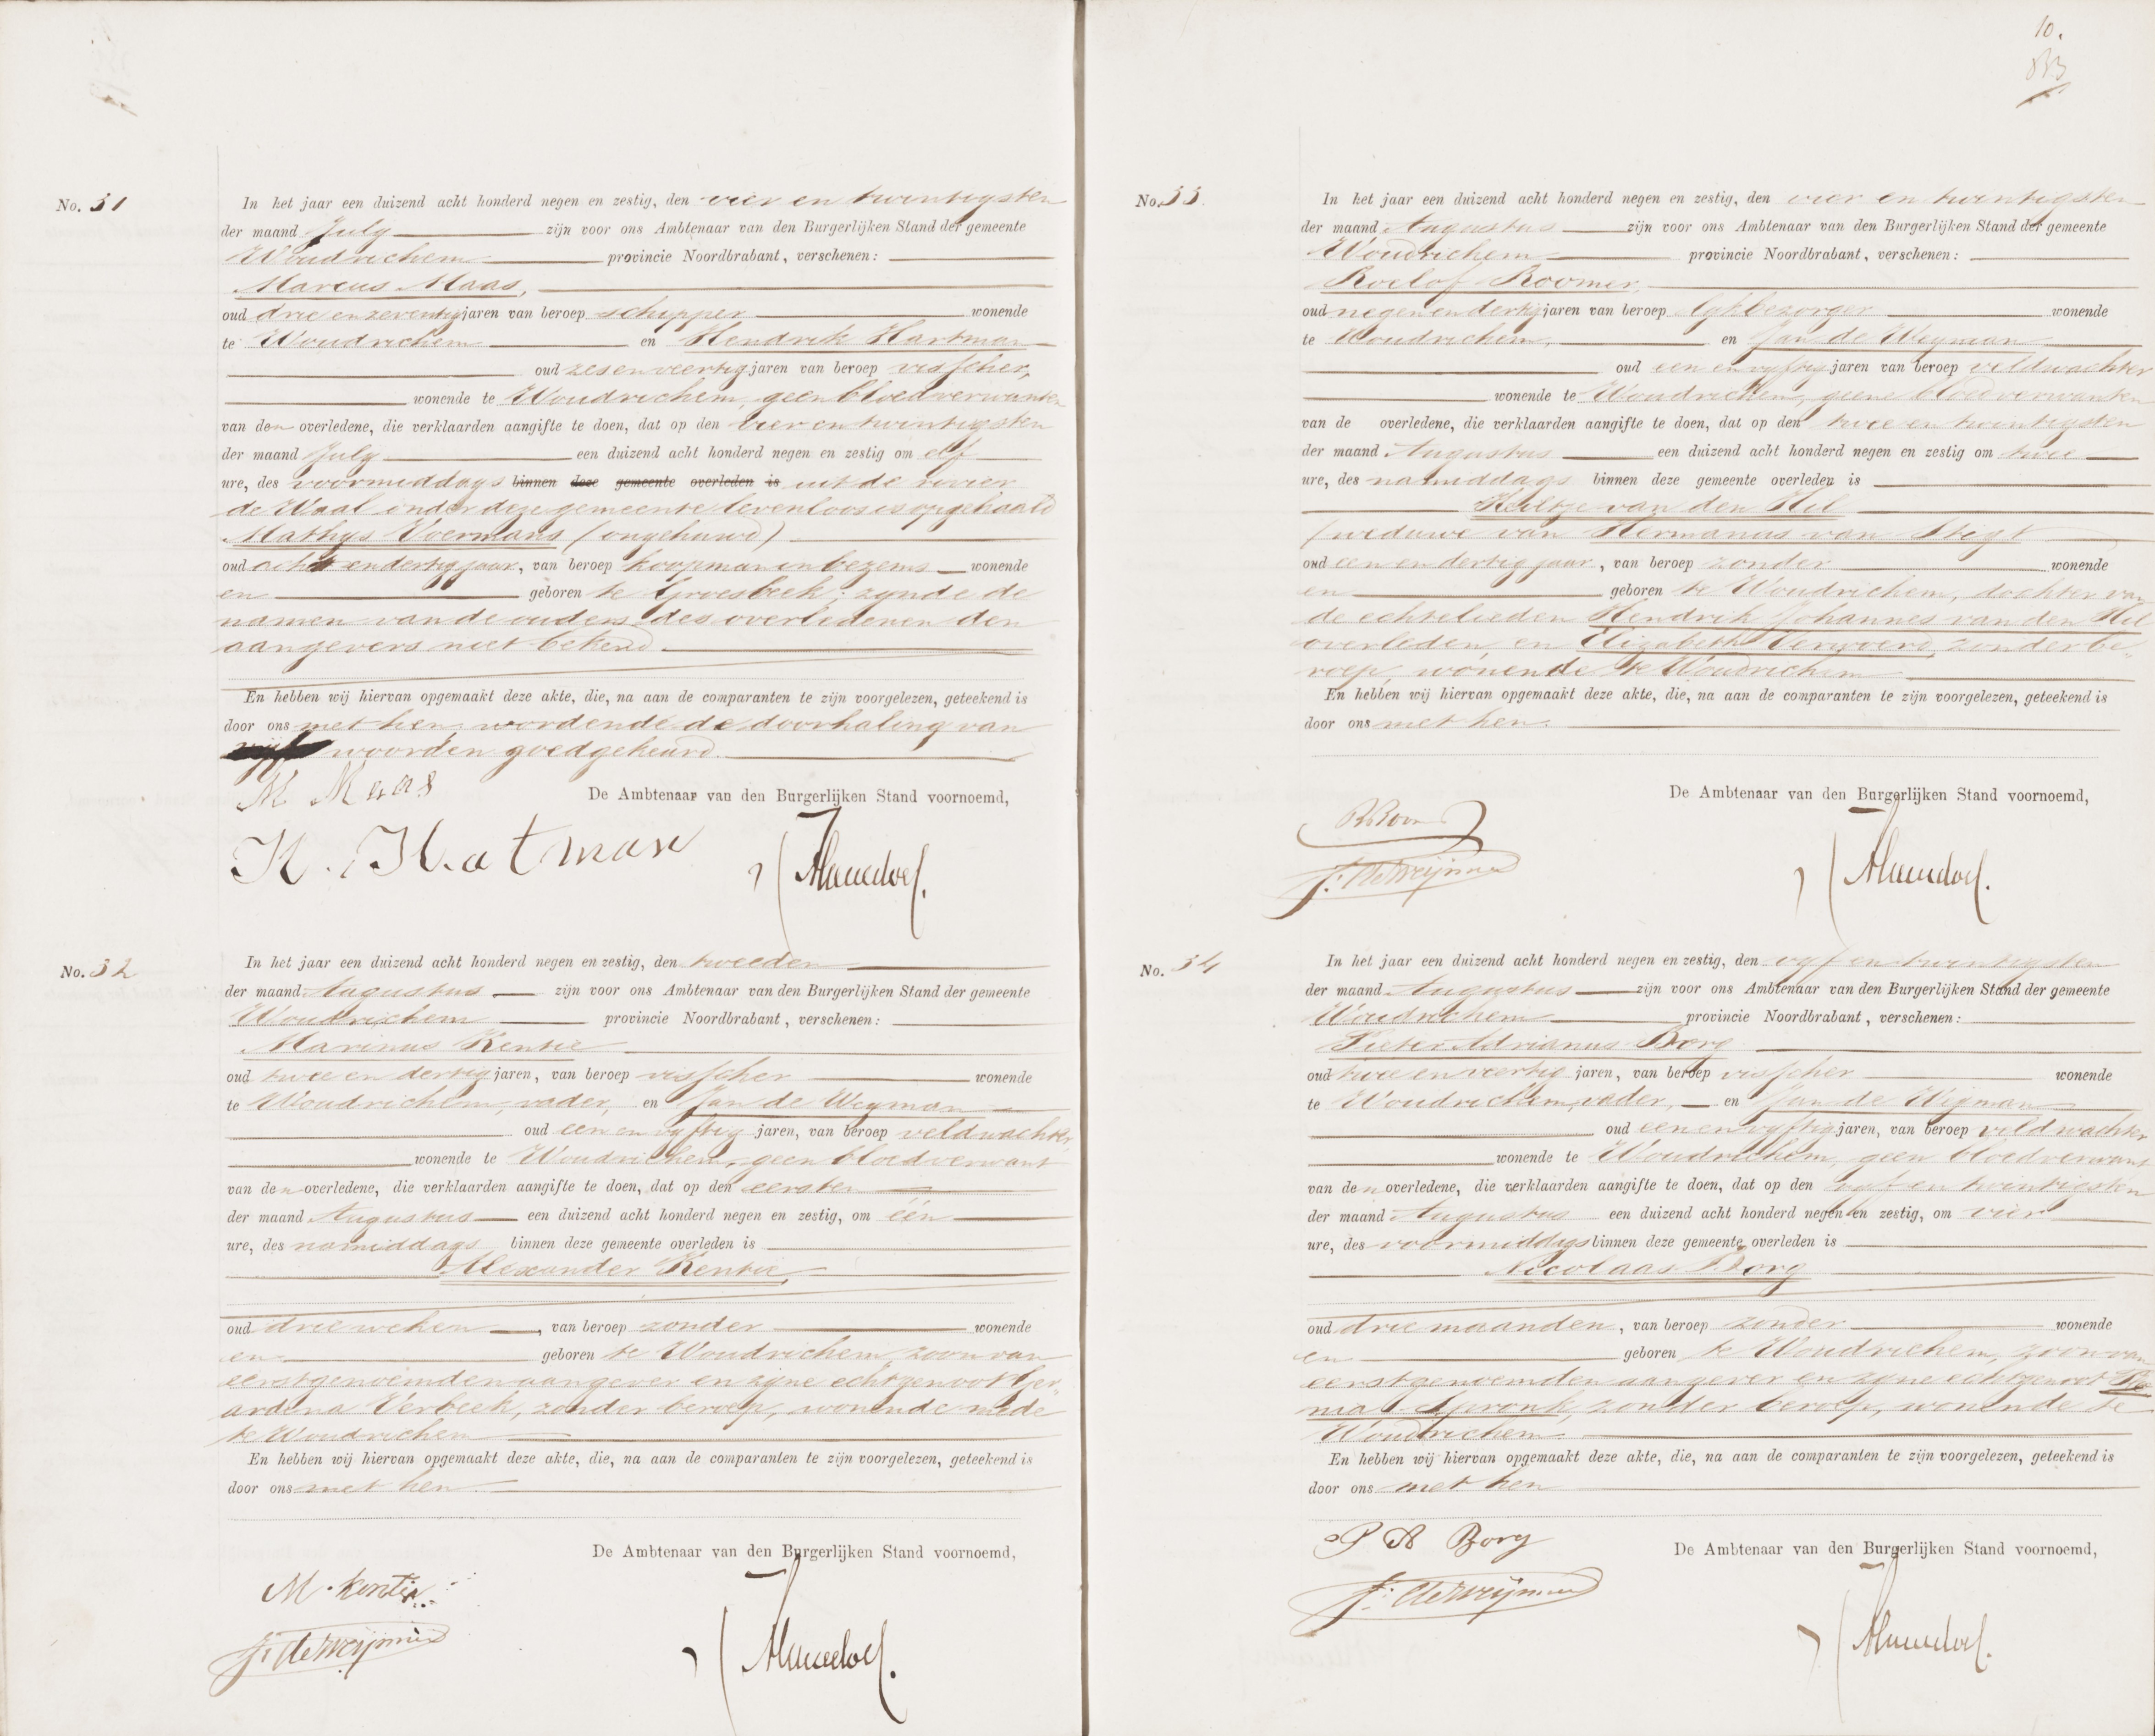 No. 31
In het jaar een duizend acht honderd negen en zestig, den vier en twintigsten
der maand July zijn voor ons Ambtenaar van den Burgerlijken Stand der gemeente
Woudrichem provincie Noordbrabant, verschenen:
Marcus Maas,
oud drie en zeventig jaren van beroep schipper wonende
te Woudrichem en Hendrik Hartman
oud zes en veertig jaren van beroep visscher,
wonende te Woudrichem, geen bloedverwanten
van den overledene, die verklaarden aangifte te doen, dat op den vier en twintigsten
der maand July een duizend acht honderd negen en zestig om elf
ure, des voormiddags binnen deze gemeente overleden is uit de rivier
de Waal onder deze gemeente levenloos is opgehaald
Mathys Voermans (ongehuwd)
oud acht en dertig jaar, van beroep koopman in bezems wonende
en geboren te Groesbeek; zynde de
namen van de ouders des overledenen den
aangevers niet bekend.
En hebben wij hiervan opgemaakt deze akte, die, na aan de comparanten te zijn voorgelezen, geteekend is
door ons met hen, wordende de doorhaling van
vijf woorden goedgekeurd.
M Maas
De Ambtenaar van den Burgerlijken Stand voornoemd,
H. Hatman
No. 32
In het jaar een duizend acht honderd negen en zestig, den tweeden
der maand Augustus zijn voor ons Ambtenaar van den Burgerlijken Stand der gemeente
Woudrichem provincie Noordbrabant, verschenen:
Marinus Kentie
oud twee en dertig jaren, van beroep visscher wonende
te Woudrichem, vader, en Jan de Weyman
oud een en vyftig jaren, van beroep veldwachter,
wonende te Woudrichem, geen bloedverwant
van den overledene, die verklaarden aangifte te doen, dat op den eersten
der maand Augustus een duizend acht honderd negen en zestig, om één
ure, des namiddags binnen deze gemeente overleden is
Alexander Kentie,
oud drie weken, van beroep zonder wonende
en geboren te Woudrichem, zoon van
eerstgenoemden aangever en zyne echtgenoot Ger-
ardina Verbeek, zonder beroep, wonende mede
te Woudrichem
En hebben wij hiervan opgemaakt deze akte, die, na aan de comparanten te zijn voorgelezen, geteekend is
door ons met hen
De Ambtenaar van den Burgerlijken Stand voornoemd,
M. Kentie
J. de Weijman
10.
No. 33.
In het jaar een duizend acht honderd negen en zestig, den vier en twintigsten
der maand Augustus zijn voor ons Ambtenaar van den Burgerlijken Stand der gemeente
Woudrichem provincie Noordbrabant, verschenen:
Roelof Roomer,
oud negen en dertig jaren van beroep lykbezorger wonende
te Woudrichem, en Jan de Weyman
oud een en vyftig jaren van beroep veldwachter
wonende te Woudrichem, geene bloedverwanten
van de overledene, die verklaarden aangifte te doen, dat op den twee en twintigsten
der maand Augustus een duizend acht honderd negen en zestig om twee
ure, des namiddags binnen deze gemeente overleden is
van den Hil
(weduwe van Hermanus van Stigt
oud een en dertig jaar, van beroep zonder wonende
en geboren te Woudrichem, dochter van
de echtelieden Hendrik Johannes van den Hil
overleden, en Elizabeth Verwoerd, zonder be-
roep, wonende te Woudrichem
En hebben wij hiervan opgemaakt deze akte, die, na aan de comparanten te zijn voorgelezen, geteekend is
door ons met hen.
De Ambtenaar van den Burgerlijken Stand voornoemd,
R Room
J. de Weijman
No. 34
In het jaar een duizend acht honderd negen en zestig, den vyf en twintigsten
der maand Augustus zijn voor ons Ambtenaar van den Burgerlijken Stand der gemeente
Woudrichem provincie Noordbrabant, verschenen:
Pieter Adrianus Borg
oud twee en veertig jaren, van beroep visscher wonende
te Woudrichem, vader, en Jan de Wijman
oud een en vyftig jaren, van beroep veldwachter
wonende te Woudrichem, geen bloedverwant
van den overledene, die verklaarden aangifte te doen, dat op den vyf en twintigsten
der maand Augustus een duizend acht honderd negen en zestig, om vier
ure, des voormiddags binnen deze gemeente overleden is
Nicolaas Borg
oud drie maanden, van beroep zonder wonende
en geboren te Woudrichem, zoon van
eerstgenoemden aangever en zyne echtgenoot
Spronk, zonder beroep, wonende te
Woudrichem
En hebben wij hiervan opgemaakt deze akte, die, na aan de comparanten te zijn voorgelezen, geteekend is
door ons met hen
P A Borg
De Ambtenaar van den Burgerlijken Stand voornoemd,
J. de Weijman